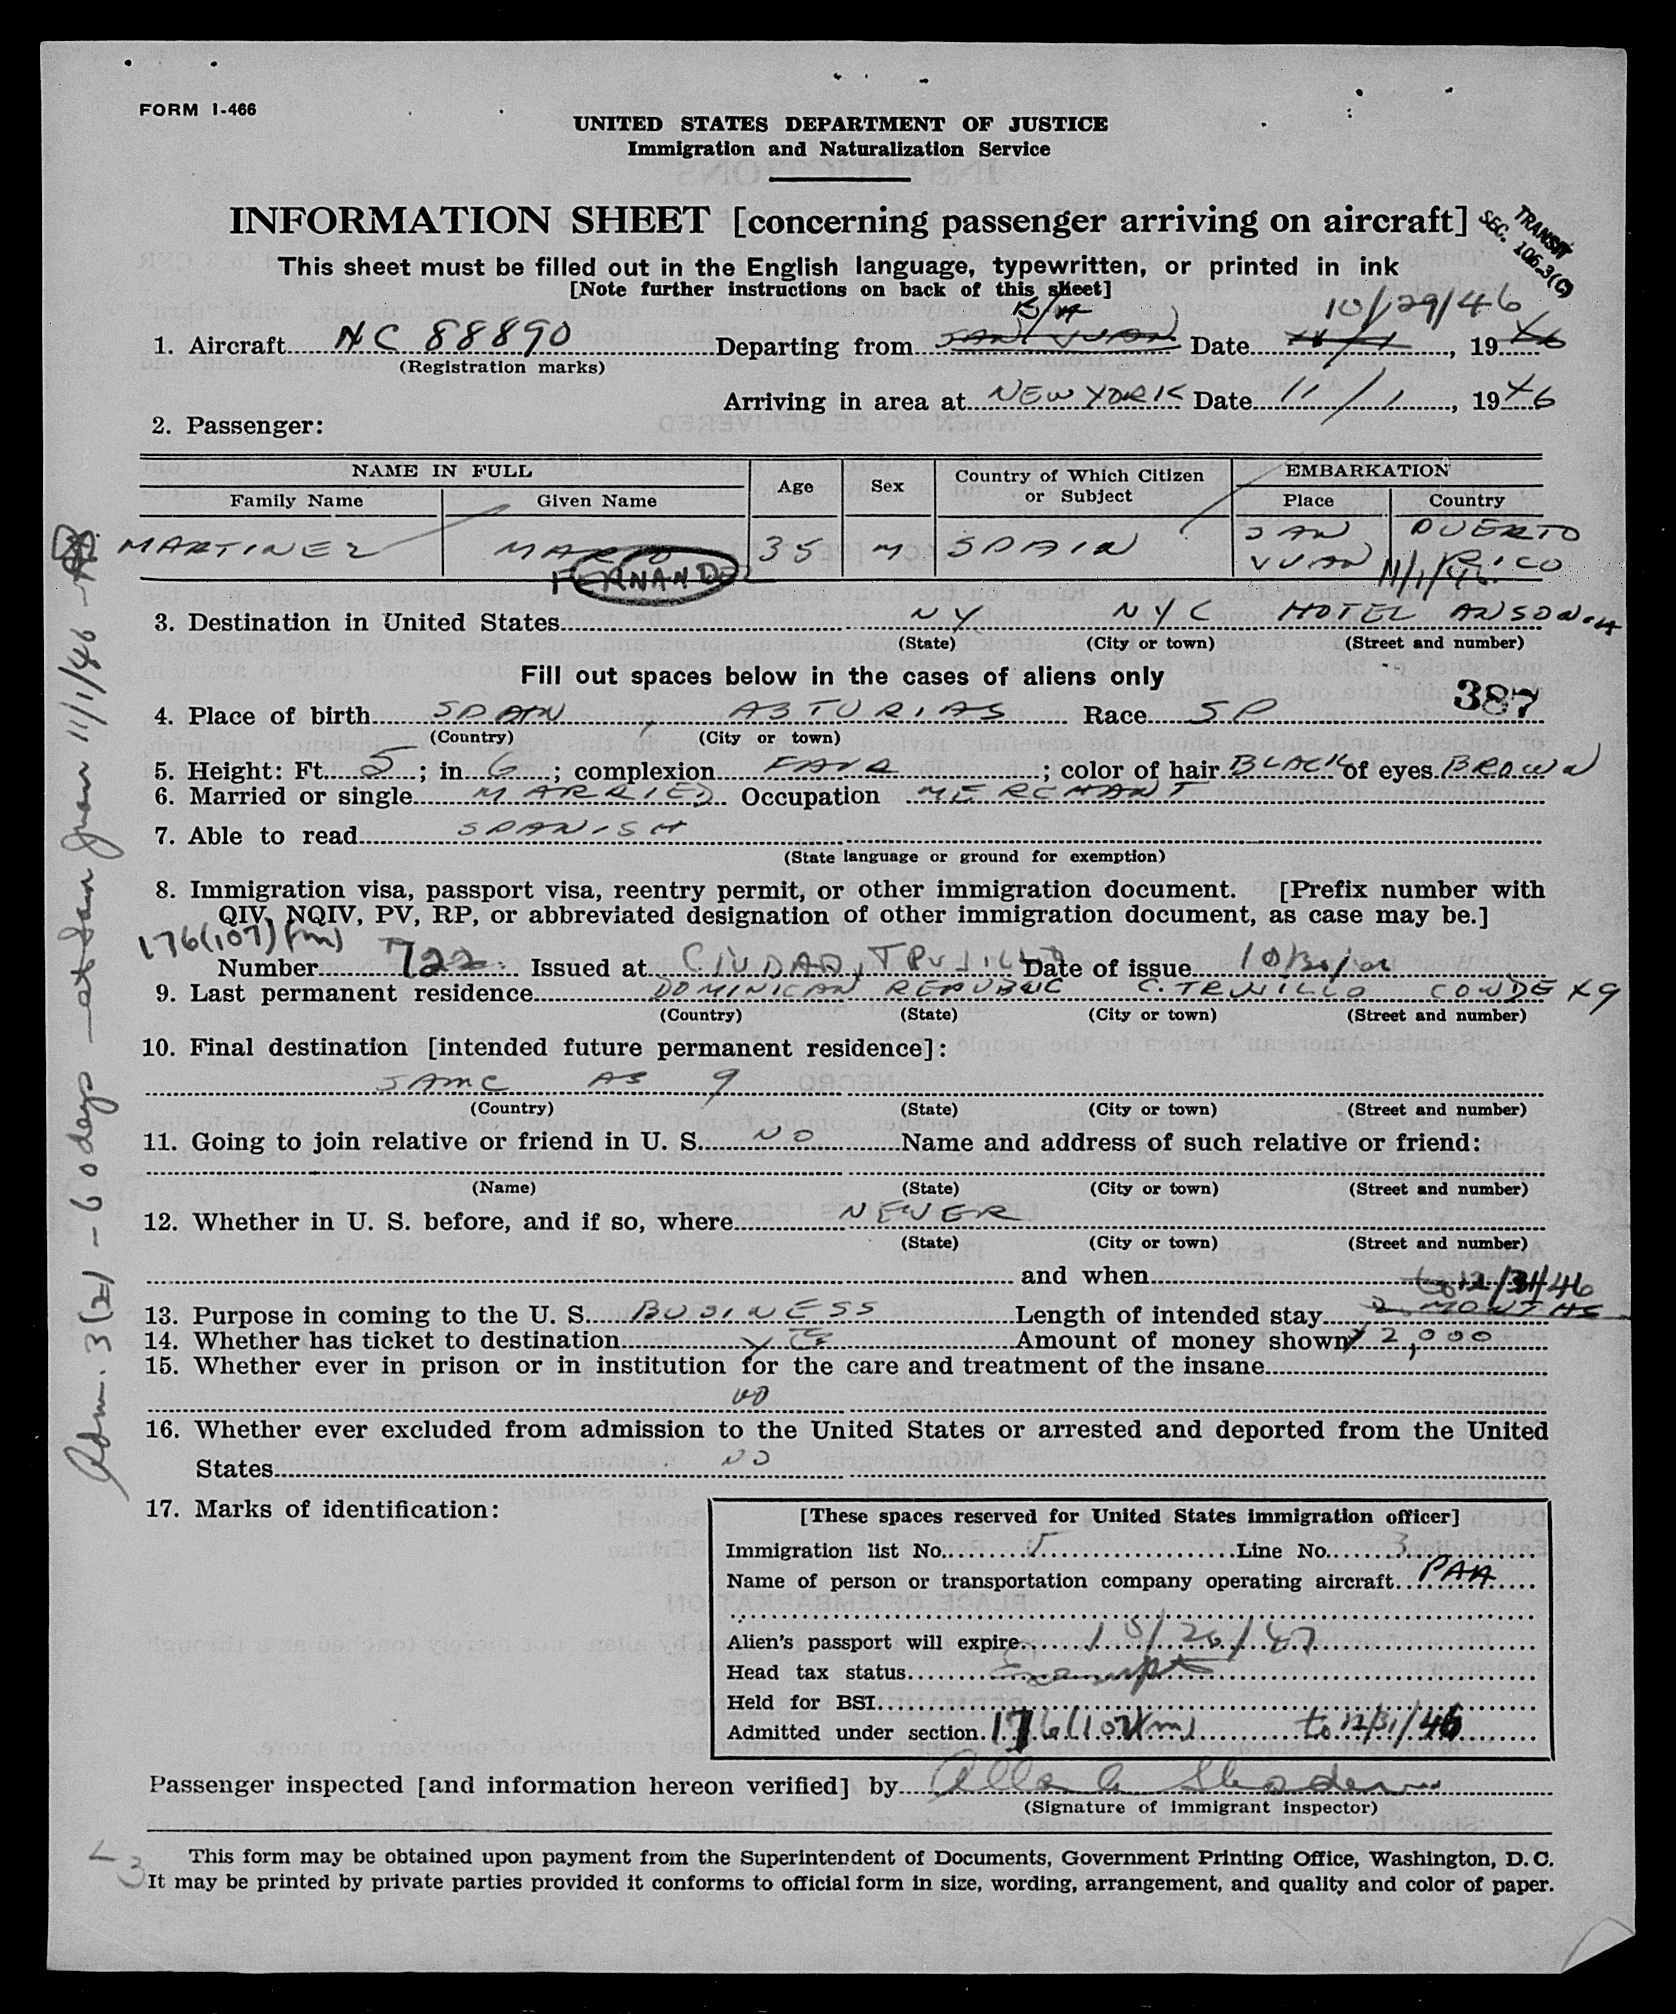 FORM I-466
UNITED STATES DEPARTMENT OF JUSTICE
Immigration and Naturalization Service
INFORMATION SHEET [concerning passenger arriving on aircraft]
TRANSIT
SEC. 106-3(C)
This sheet must be filled out in the English language, typewritten, or printed in ink
[Note further instructions on back of this sheet]
10/29/46
1. Aircraft NC 88890 Departing from SAN JUAN Date , 19 46
(Registration marks)
Arriving in area at NEW YORK Date 11/1, 19 46
2. Passenger:
NAME IN FULL Age Sex Country of Which Citizen or Subject EMBARKATION
Family Name Given Name Place Country
MARTINEZ MARIO 35 M SPAIN SAN JUAN PUERTO RICO
FERNANDEZ 11/1/46
3. Destination in United States NY NYC HOTEL ANSONIA
(State) (City or town) (Street and number)
Fill out spaces below in the cases of aliens only
387
4. Place of birth SPAIN, ASTURIAS Race SP
(Country) (City or town)
5. Height: Ft. 5; in. 6; complexion FAIR; color of hair BLACK of eyes BROWN
6. Married or single MARRIED Occupation MERCHANT
7. Able to read SPANISH
(State language or ground for exemption)
8. Immigration visa, passport visa, reentry permit, or other immigration document. [Prefix number with
QIV, NQIV, PV, RP, or abbreviated designation of other immigration document, as case may be.]
176(107)(m)
Number 722 Issued at CIUDAD TRUJILLO Date of issue
9. Last permanent residence DOMINICAN REPUBLIC C. TRUJILLO CONDE 49
(Country) (State) (City or town) (Street and number)
10. Final destination [intended future permanent residence]:
SAME AS 9
(Country) (State) (City or town) (Street and number)
11. Going to join relative or friend in U. S. NO Name and address of such relative or friend:
(Name) (State) (City or town) (Street and number)
12. Whether in U. S. before, and if so, where NEVER
(State) (City or town) (Street and number)
and when
to 12/31/46
13. Purpose in coming to the U. S. BUSINESS Length of intended stay 2 MONTHS
14. Whether has ticket to destination YES Amount of money shown 2,000
15. Whether ever in prison or in institution for the care and treatment of the insane
NO
16. Whether ever excluded from admission to the United States or arrested and deported from the United
States NO
17. Marks of identification:
[These spaces reserved for United States immigration officer]
Immigration list No. 5 Line No. 3
Name of person or transportation company operating aircraft PAA
Alien's passport will expire 10/26/47
Head tax status Exempt
Held for BSI
Admitted under section 176(107)(m) to 12/31/46
Passenger inspected [and information hereon verified] by
(Signature of immigrant inspector)
This form may be obtained upon payment from the Superintendent of Documents, Government Printing Office, Washington, D. C.
It may be printed by private parties provided it conforms to official form in size, wording, arrangement, and quality and color of paper.
Adm. 3(2) - 60 days - at San Juan 11/1/46